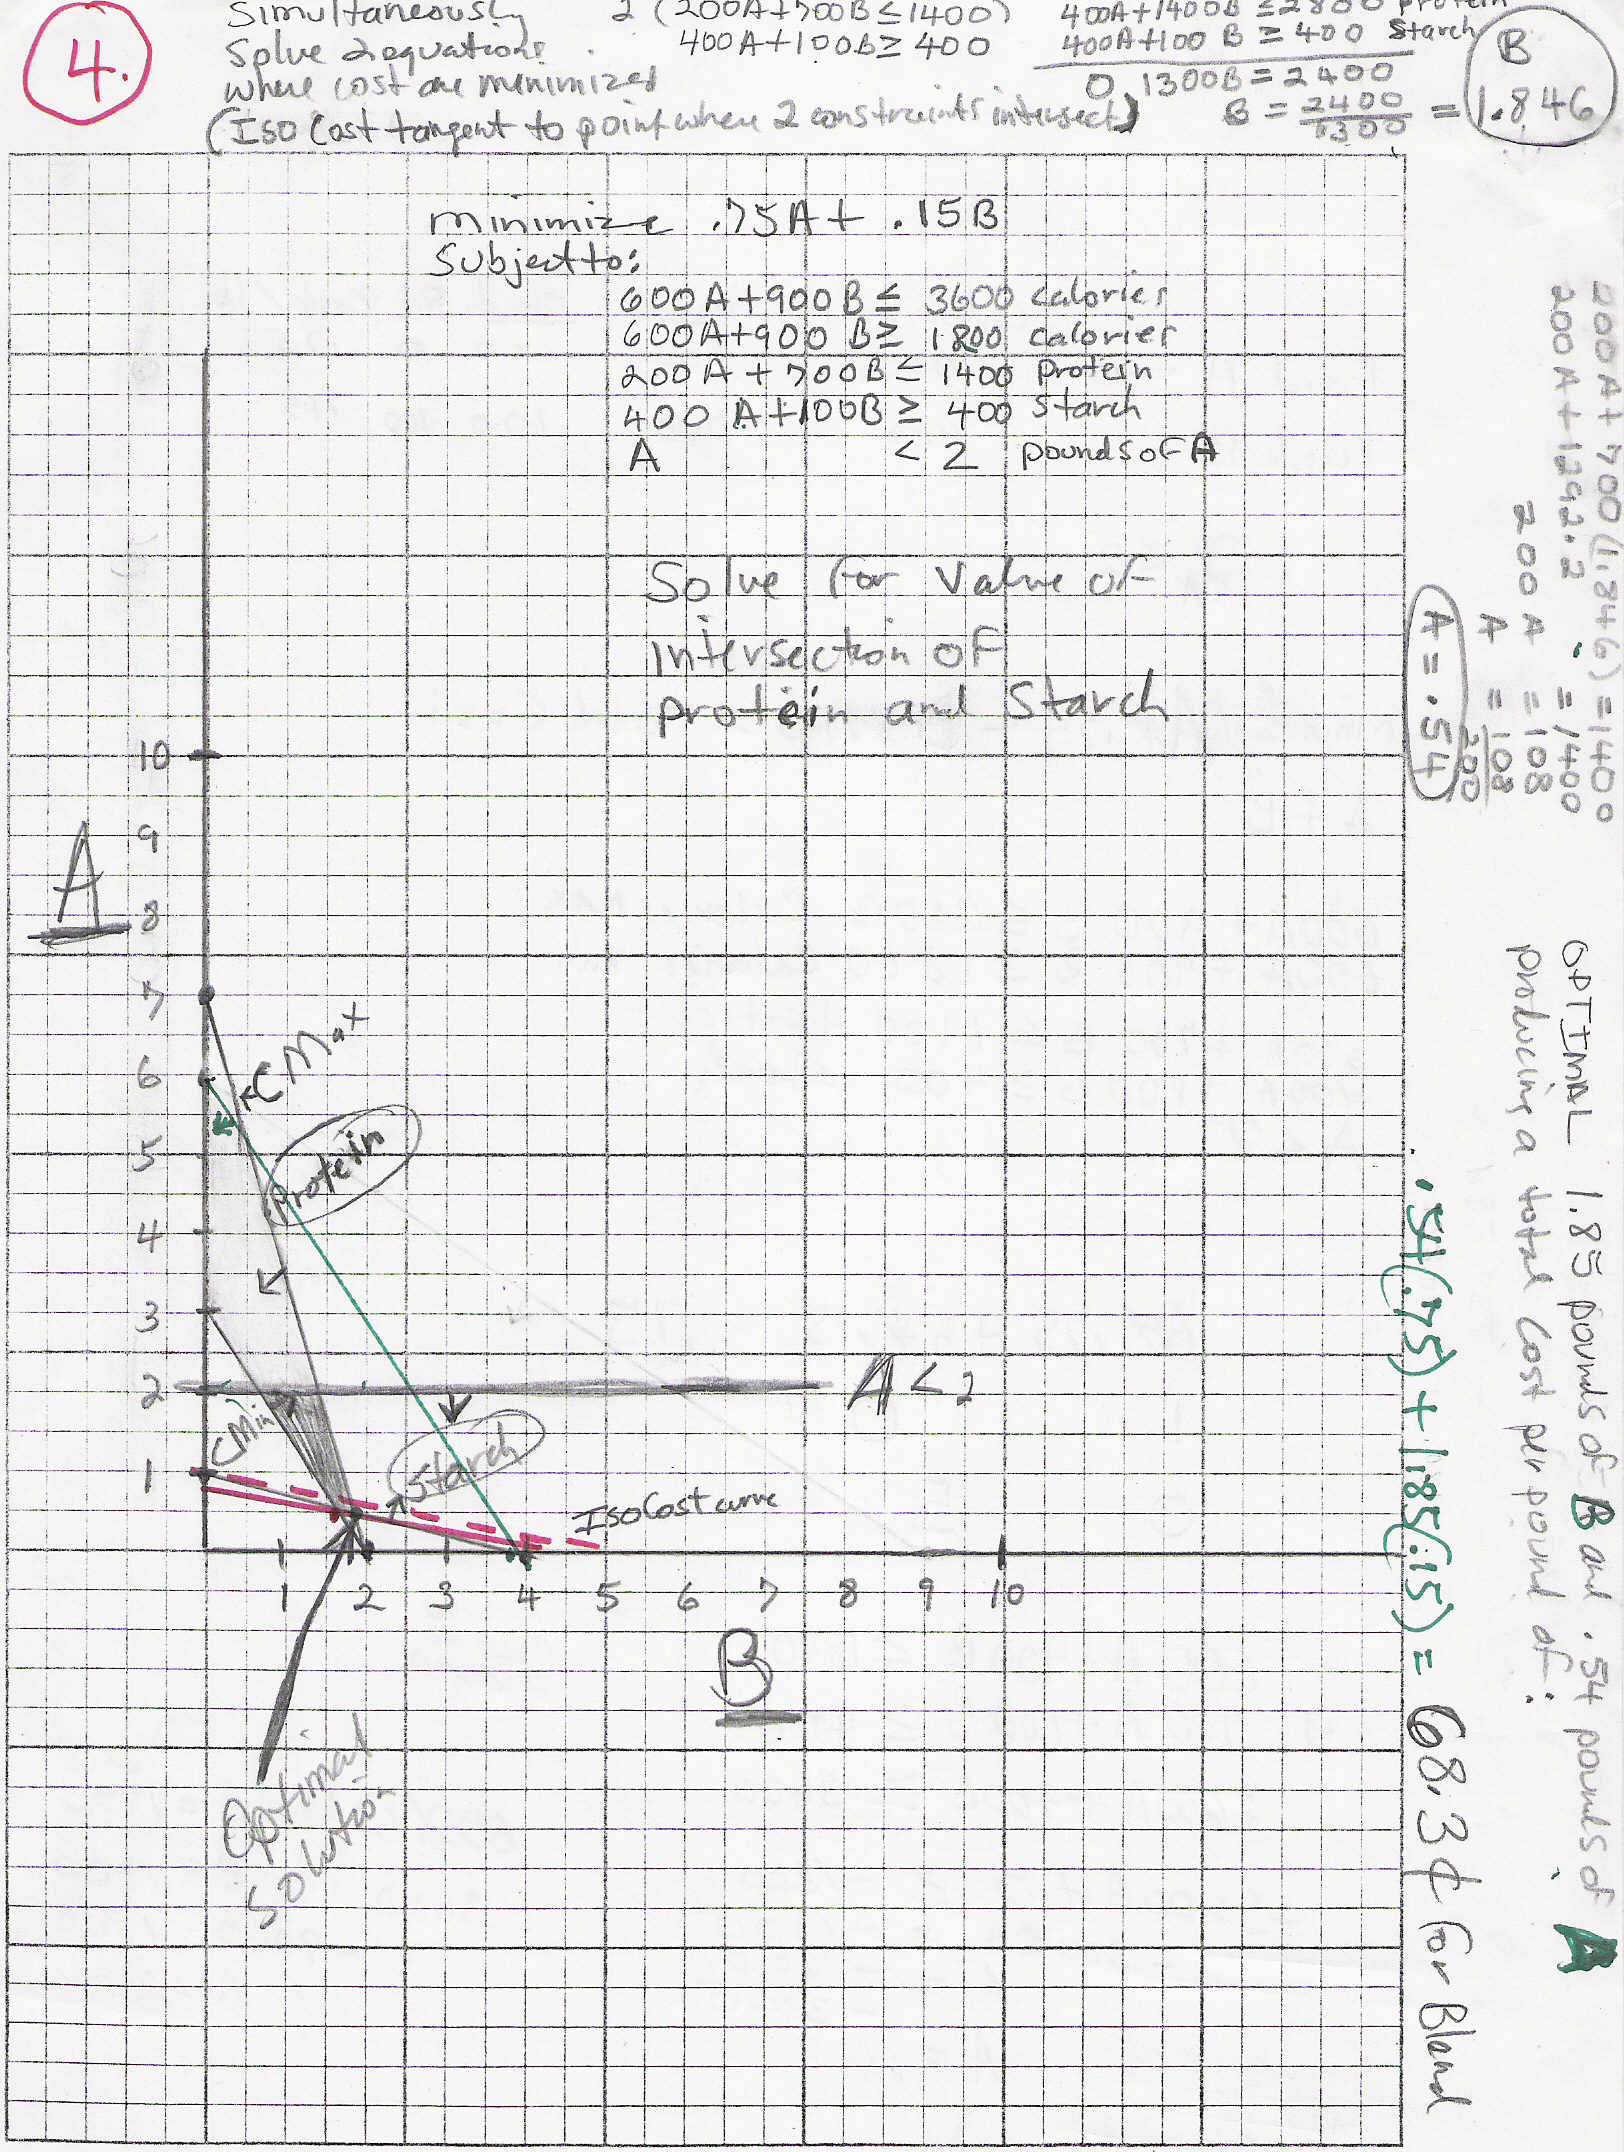 4.
Simultaneously
Solve 2 equations
where cost are minimized
(Iso Cost tangent to point where 2 constraints intersect)
2 (200A+700B ≤ 1400)
400A+100B ≥ 400
400A+1400B ≤ 2800 protein
400A+100B ≥ 400 starch
0 1300B = 2400
B = 2400/1300 = 1.846
B
minimize .75A + .15B
Subject to:
600A+900B ≤ 3600 calories
600A+900B ≥ 1800 calories
200A+700B ≤ 1400 protein
400A+100B ≥ 400 starch
A < 2 pounds of A
Solve for Value of
intersection of
protein and Starch
200A+700(1.846) = 1400
200A+1292.2 = 1400
200A = 108
A = 108/200
A = .54
10
9
A
8
7
6
5
4
3
2
1
C Max
protein
A < 2
C Min
Starch
Iso Cost curve
1 2 3 4 5 6 7 8 9 10
B
Optimal
solution
OPTIMAL 1.85 pounds of B and .54 pounds of A
producing a total cost per pound of:
.54(.75) + 1.85(.15) = 68.3¢ for Bland